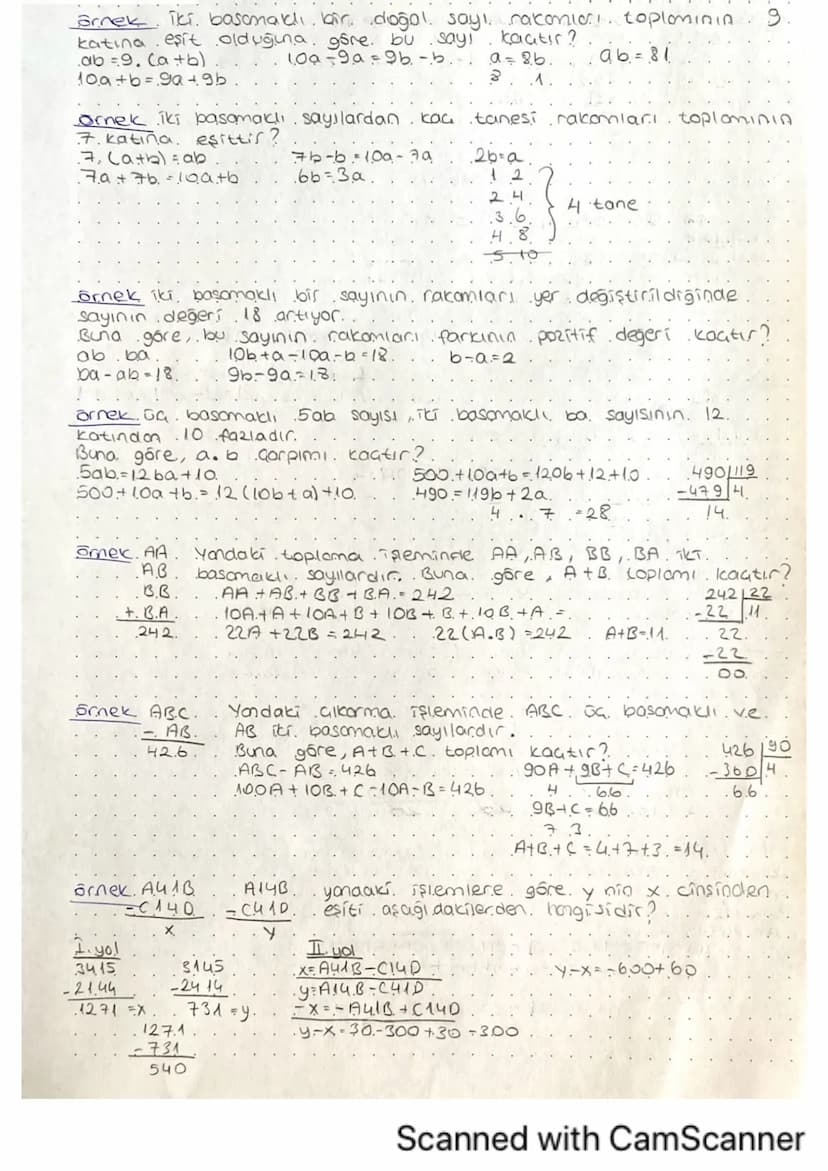 örnek iki basamaklı bir doğal sayı rakamları toplamının 9
katına eşit olduğuna göre bu sayı kaçtır?
ab = 9.(a+b) 10a-9a=9b-b a=8b ab=81
10a+b=9a+9b 8 1
örnek iki basamaklı sayılardan kaç tanesi rakamları toplamının
7 katına eşittir?
7.(a+b)=ab 7b-b=10a-7a 2b=a
7a+7b=10a+b 6b=3a 1 2
2 4
3 6 4 tane
4 8
5 10
örnek iki basamaklı bir sayının rakamları yer değiştirildiğinde
sayının değeri 18 artıyor.
Buna göre, bu sayının rakamları farkının pozitif değeri kaçtır?
ab ba 10b+a-10a-b=18 b-a=2
ba-ab=18 9b-9a=18
örnek üç basamaklı 5ab sayısı, iki basamaklı ba sayısının 12
katından 10 fazladır.
Buna göre, a.b çarpımı kaçtır?
5ab=12ba+10 500+10a+b=120b+12+10 490 119
500+10a+b=12(10b+a)+10 490=119b+2a -479 4
4 . 7 =28 14
örnek AA Yandaki toplama işleminde AA, AB, BB, BA iki
AB basamaklı sayılardır. Buna göre, A+B toplamı kaçtır?
BB AA+AB+BB+BA=242 242 22
+ BA 10A+A+10A+B+10B+B+10B+A= -22 11
242 22A+22B=242 22(A.B)=242 A+B=11 22
-22
00
örnek ABC Yandaki çıkarma işleminde ABC üç basamaklı ve
- AB AB iki basamaklı sayılardır.
426 Buna göre, A+B+C toplamı kaçtır? 426 90
ABC-AB=426 90A+9B+C=426 -360 4
100A+10B+C-10A-B=426 4 66 66
9B+C=66
7 3
A+B+C=4+7+3=14
örnek A41B A14B yandaki işlemlere göre y nin x cinsinden
-C14D -C41D eşiti aşağıdakilerden hangisidir?
x y
I. yol II. yol
3415 3145 x=A41B-C14D y-x=-600+60
-2144 -2414 y=A14B-C41D
1271=x 731=y -x=-A41B+C14D
1271 y-x=30-300+30-300
-731
540
Scanned with CamScanner